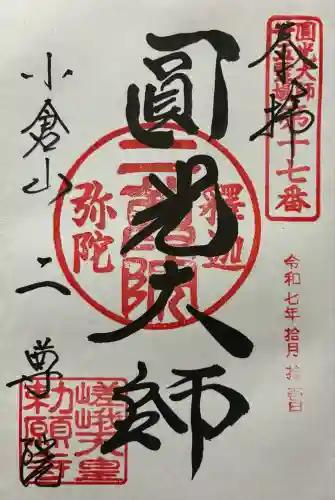 奉拝
圓光大師
第十七番
令和七年拾月拾壹日
圓光大師
釋迦
二尊院
弥陀
小倉山二尊院
嵯峨天皇
勅願寺